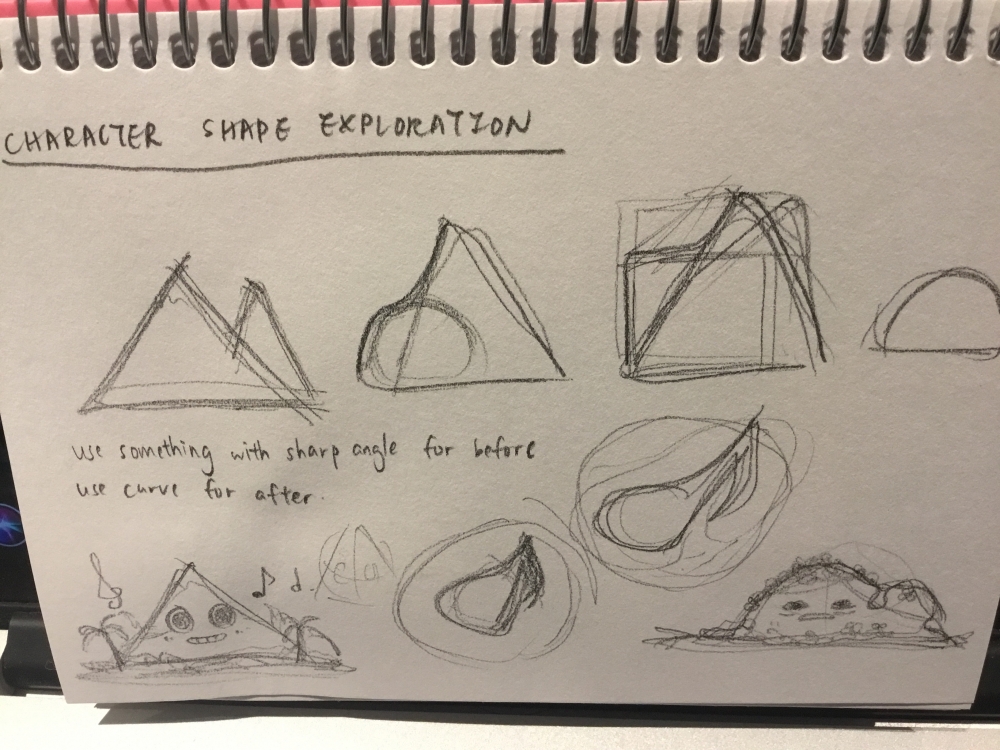 CHARACTER SHAPE EXPLORATION
use something with sharp angle for before
use curve for after.